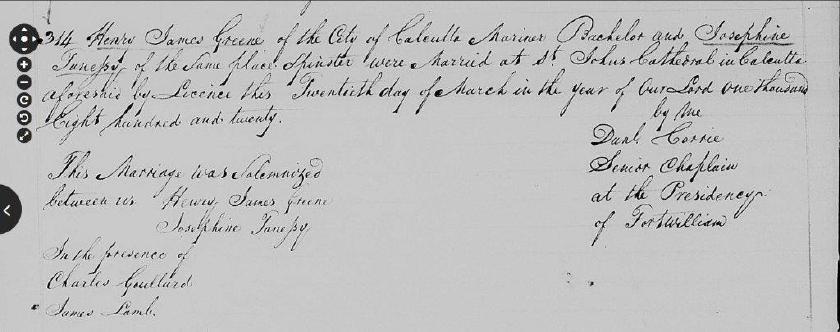 314 Henry James Greene of the City of Calcutta Mariner Bachelor and Josephine
of the Same place Spinster were Married at St. Johns Cathedral in Calcutta
aforesaid by Licence this Twentieth day of March in the year of Our Lord One thousand
Eight hundred and twenty.
by me
Danl. Corrie
Senior Chaplain
at the Presidency
of Fort William
This Marriage was Solemnized
between us Henry James Greene
Josephine
In the presence of
Charles
James Lamb.